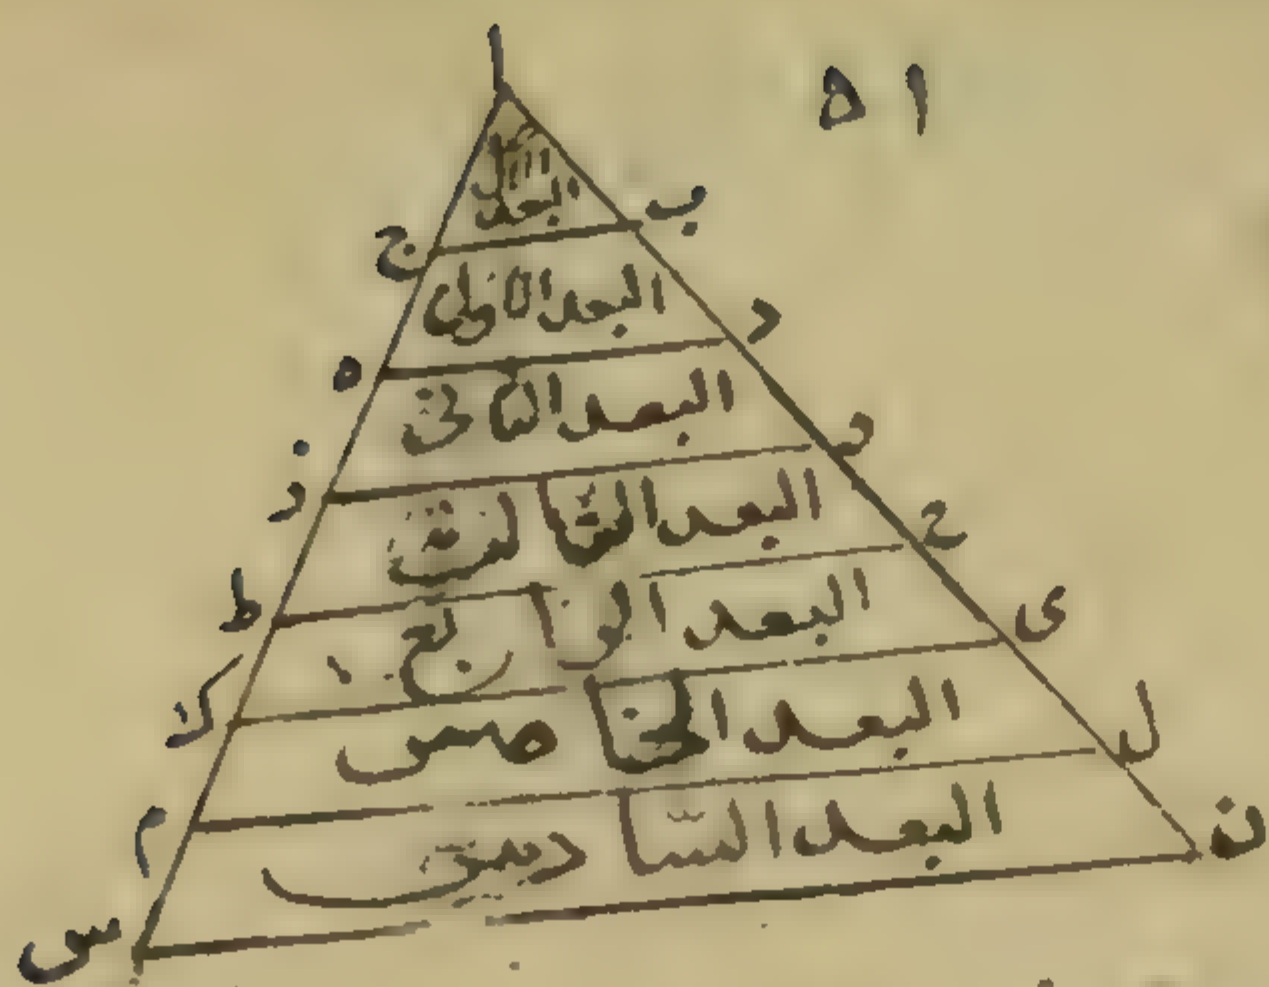 ا
۵۱
البعد
ب
ج
البعد الاول
د
ه
البعد الثانى
و
ز
البعد الثالث
ح
ط
البعد الرابع
ى
ك
البعد الخامس
ل
م
البعد السادس
ن
س